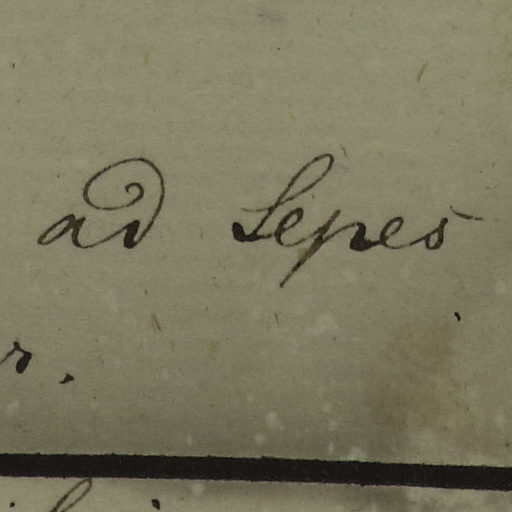 ad Sepes
r.